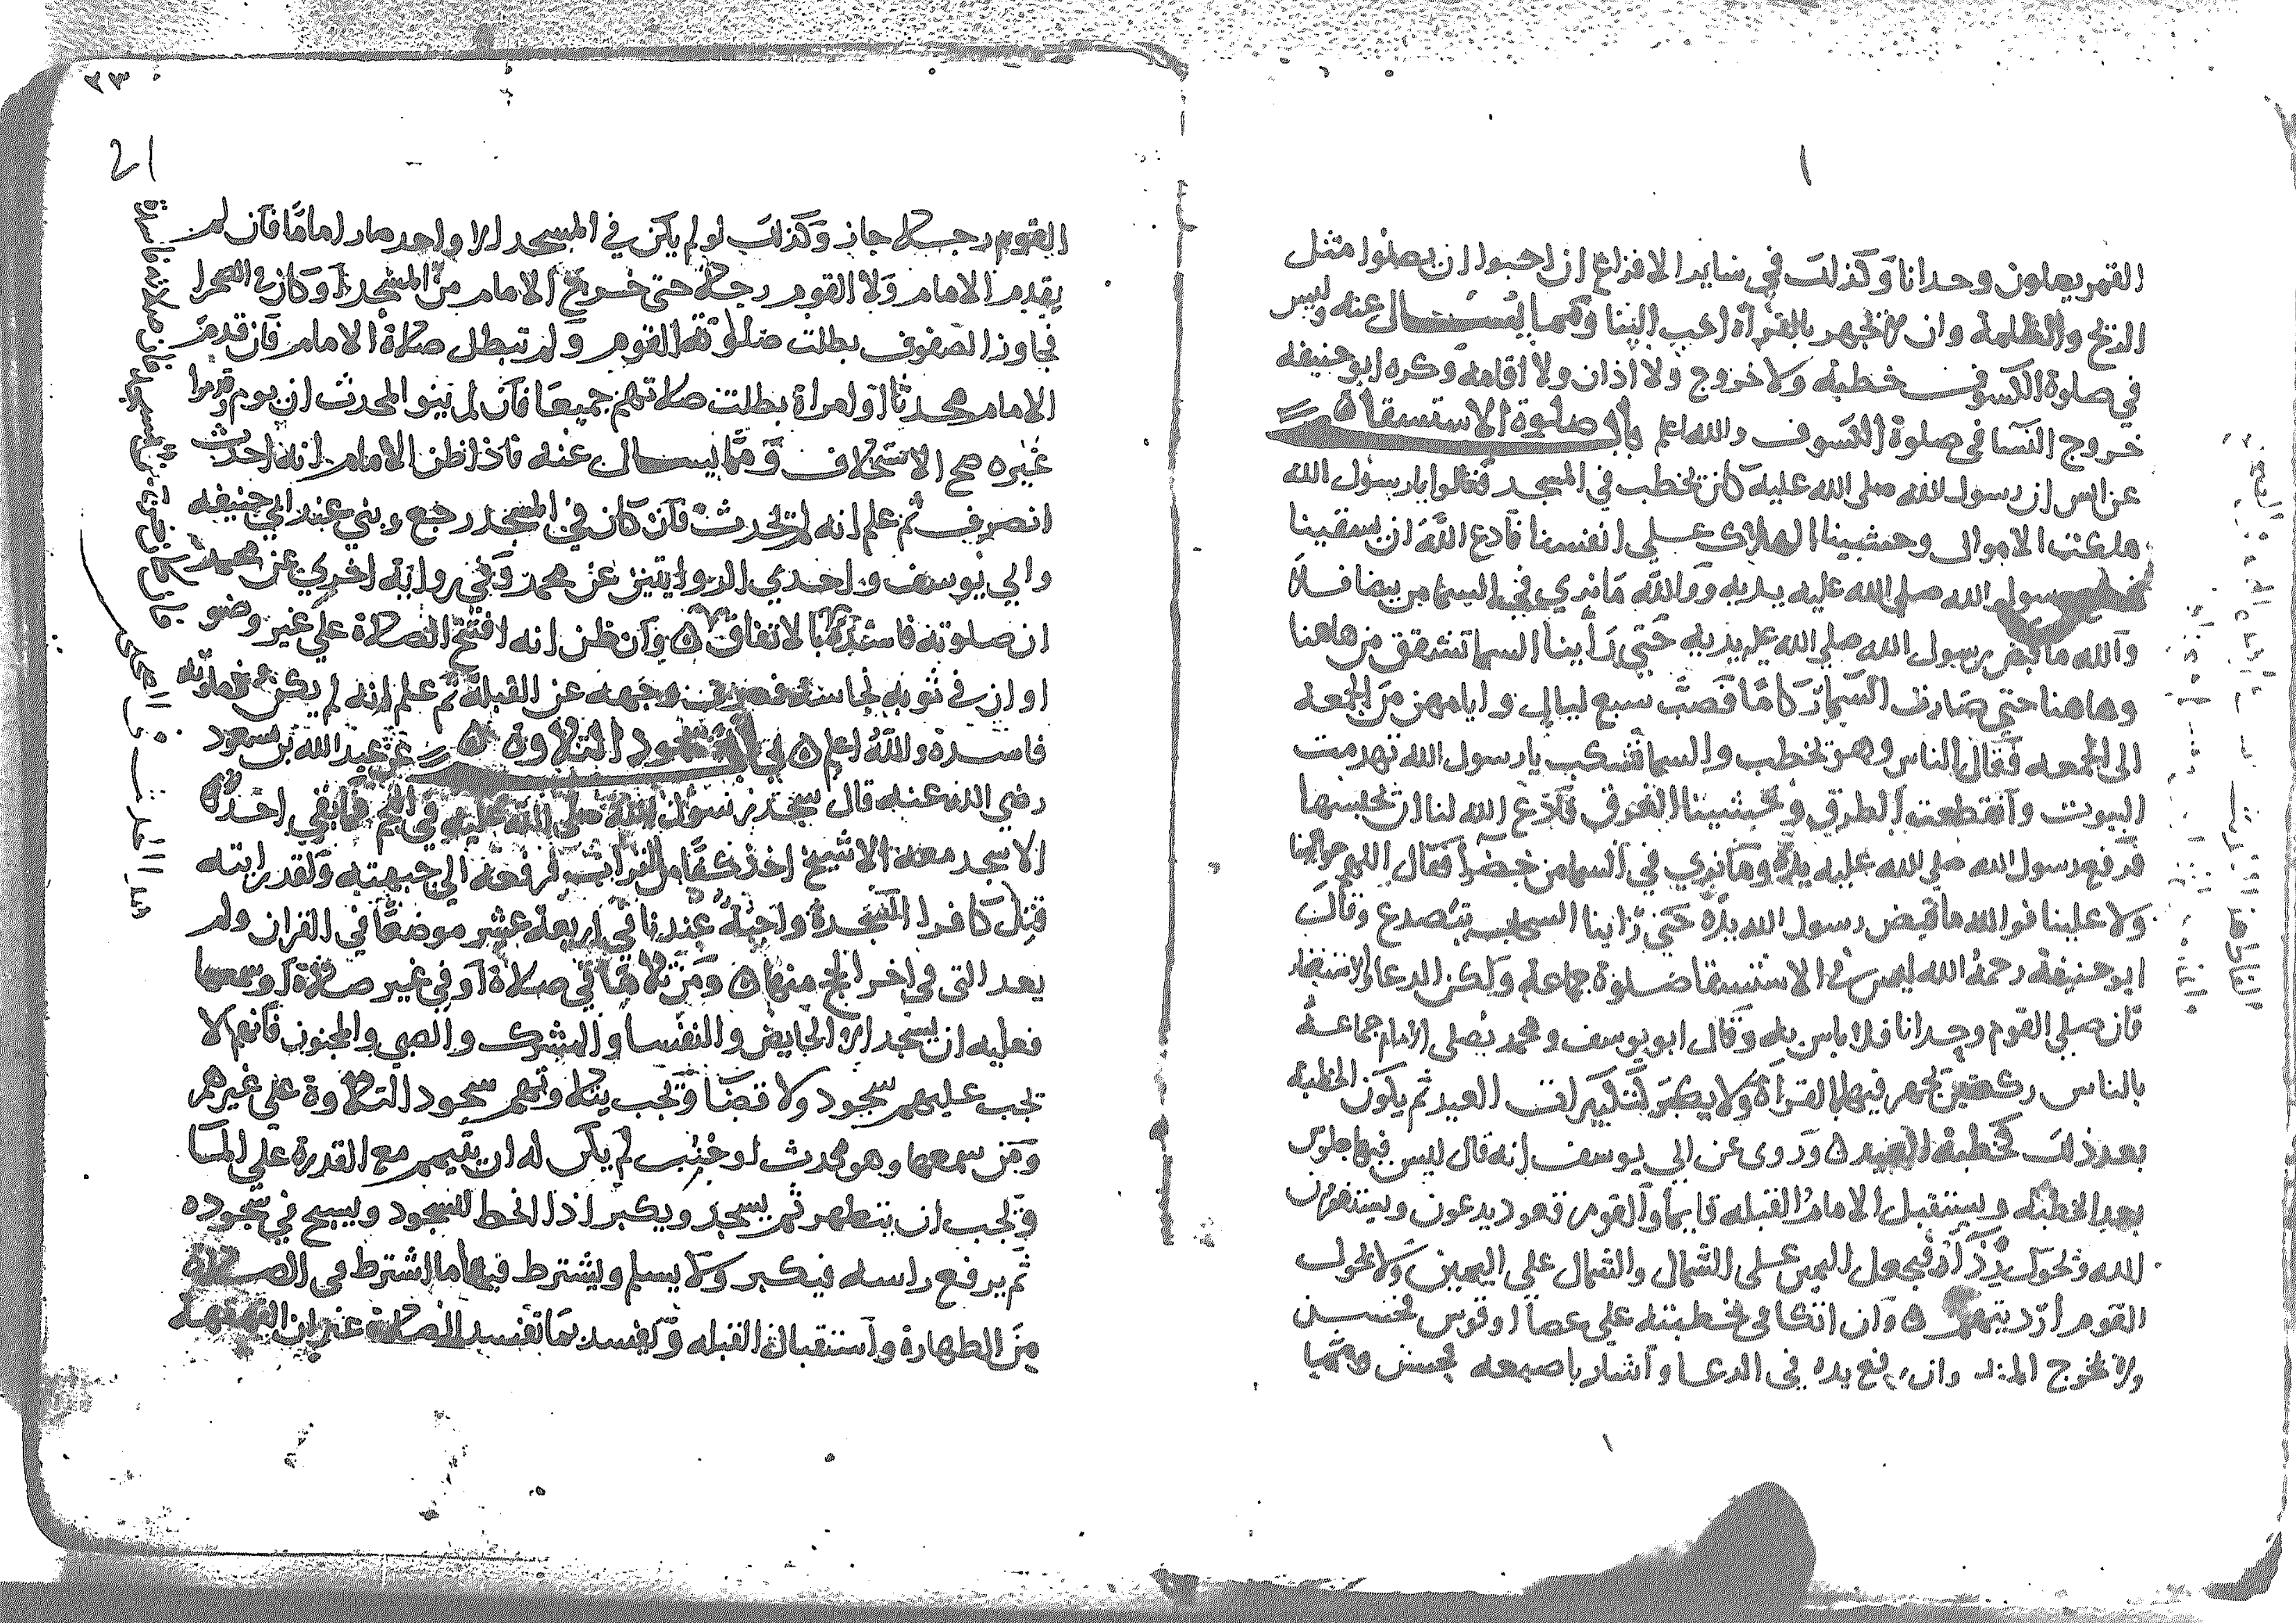 القمر يصلون وحدانا وكذلك في ساير الافزاع ان احبوا ان يصلوا مثل
الريح والظلمة وان لا يجهر بالقراة احب الينا ومما يسال عنه وليس
في صلوة الكسوف خطبه ولا خروج ولا اذان ولا اقامه وكره ابو حنيفه
خروج النسا في صلوة الكسوف والله اعلم باب صلوة الاستسقاء
عن انس ان رسول الله صلى الله عليه كان يخطب في المسجد فقالوا يا رسول الله
هلكت الاموال وخشينا الهلاك على انفسنا فادع الله ان يسقينا
رسول الله صلى الله عليه يديه ووالله ما نري في السما من بيضا
والله ما قبض رسول الله صلى الله عليه يديه حتى راينا السما تشقق من هاهنا
وهاهنا حتى صارت السما ركاما فصب سبع ليالي وايامهن من الجمعه
الى الجمعه فقال الناس وهو يخطب والسما تسكب يا رسول الله تهدمت
البيوت وانقطعت الطرق وخشينا الغرق فادع الله لنا ان يحبسها
فرفع رسول الله صلى الله عليه يده وما نري في السما من خضرا فقال اللهم حوالينا
ولا علينا فوالله ما قبض رسول الله يده حتى راينا السحاب يتصدع وقال
ابو حنيفة رحمه الله ليس في الاستسقا صلوة جماعة ولكن الدعا والاستغفار
فان صلى القوم وحدانا فلا باس به وقال ابو يوسف ومحمد يصلى الامام جماعة
بالناس ركعتين يجهر فيها بالقراة ولا يكبر كتكبيرات العيد ثم يكون الخطبة
بعد ذلك كخطبة العيد ٥ وروى عن ابي يوسف انه قال ليس فيها جلوس
بعد الخطبه ويستقبل الامام القبله قايما والقوم قعود يدعون ويستغفرون
الله ويحول رداه فيجعل اليمين على الشمال والشمال علي اليمين ولا يحول
القوم ارديتهم ٥ وان اتكا في خطبته على عصا او قوس فحسن
ولا يخرج وان رفع يده في الدعا واشار باصبعه فحسن
٢٣
21
القوم رجلا جاز وكذلك لو لم يكن في المسجد الا واحد صار اماما فان لم
يقدم الامام ولا القوم رجلا حتى خرج الامام من المسجد او كان في الصحرا
فجاوز الصفوف بطلت صلوة القوم ولم تبطل صلاة الامام فان قدم
الامام محدثا او امراة بطلت صلاتهم جميعا فان لم ينو المحدث ان يوم وقدموا
غيره صح الاستخلاف ومما يسال عنه فاذا ظن الامام انه احدث
انصرف ثم علم انه لم يحدث فان كان في المسجد رجع وبنى عند ابي حنيفه
وابي يوسف واحدي الروايتين عن محمد وفي رواية اخري عن محمد
ان صلوته فاسدة بالاتفاق ٥ وان ظن انه افتتح الصلاة على غير وضو
او ان في ثوبه نجاسة فصرف وجهه عن القبلة ثم علم انه لم يكن فصلاته
فاسدة والله اعلم ٥ باب سجود التلاوة ٥ عن عبد الله بن مسعود
رضي الله عنه قال سجد رسول الله صلى الله عليه في النجم فما بقي احد
الا سجد معه الا شيخ اخذ كفا من التراب فرفعه الي جبهته ولقد رايته
قتل كافرا السجدة واجبة عندنا في اربعة عشر موضعا في القران ولم
يعد التى في اخر الحج منها ٥ ومن تلاها في صلاة او في غير صلاة او سمعها
فعليه ان يسجد الا الحايض والنفسا والمشرك والصبي والمجنون فانهم لا
تجب عليهم سجود ولا قضا وتجب بتلاوتهم سجود التلاوة على غيرهم
ومن سمعها وهو محدث او جنب لم يكن له ان يتيمم مع القدرة على الما
ويجب ان يتطهر ثم يسجد ويكبر اذا انحط للسجود ويسبح في سجوده
ثم يرفع راسه فيكبر ولا يسلم ويشترط فيها ما اشترط في الصلاة
من الطهارة واستقبال القبله ويفسد بما تفسد الصلاة غير ان القهقهة